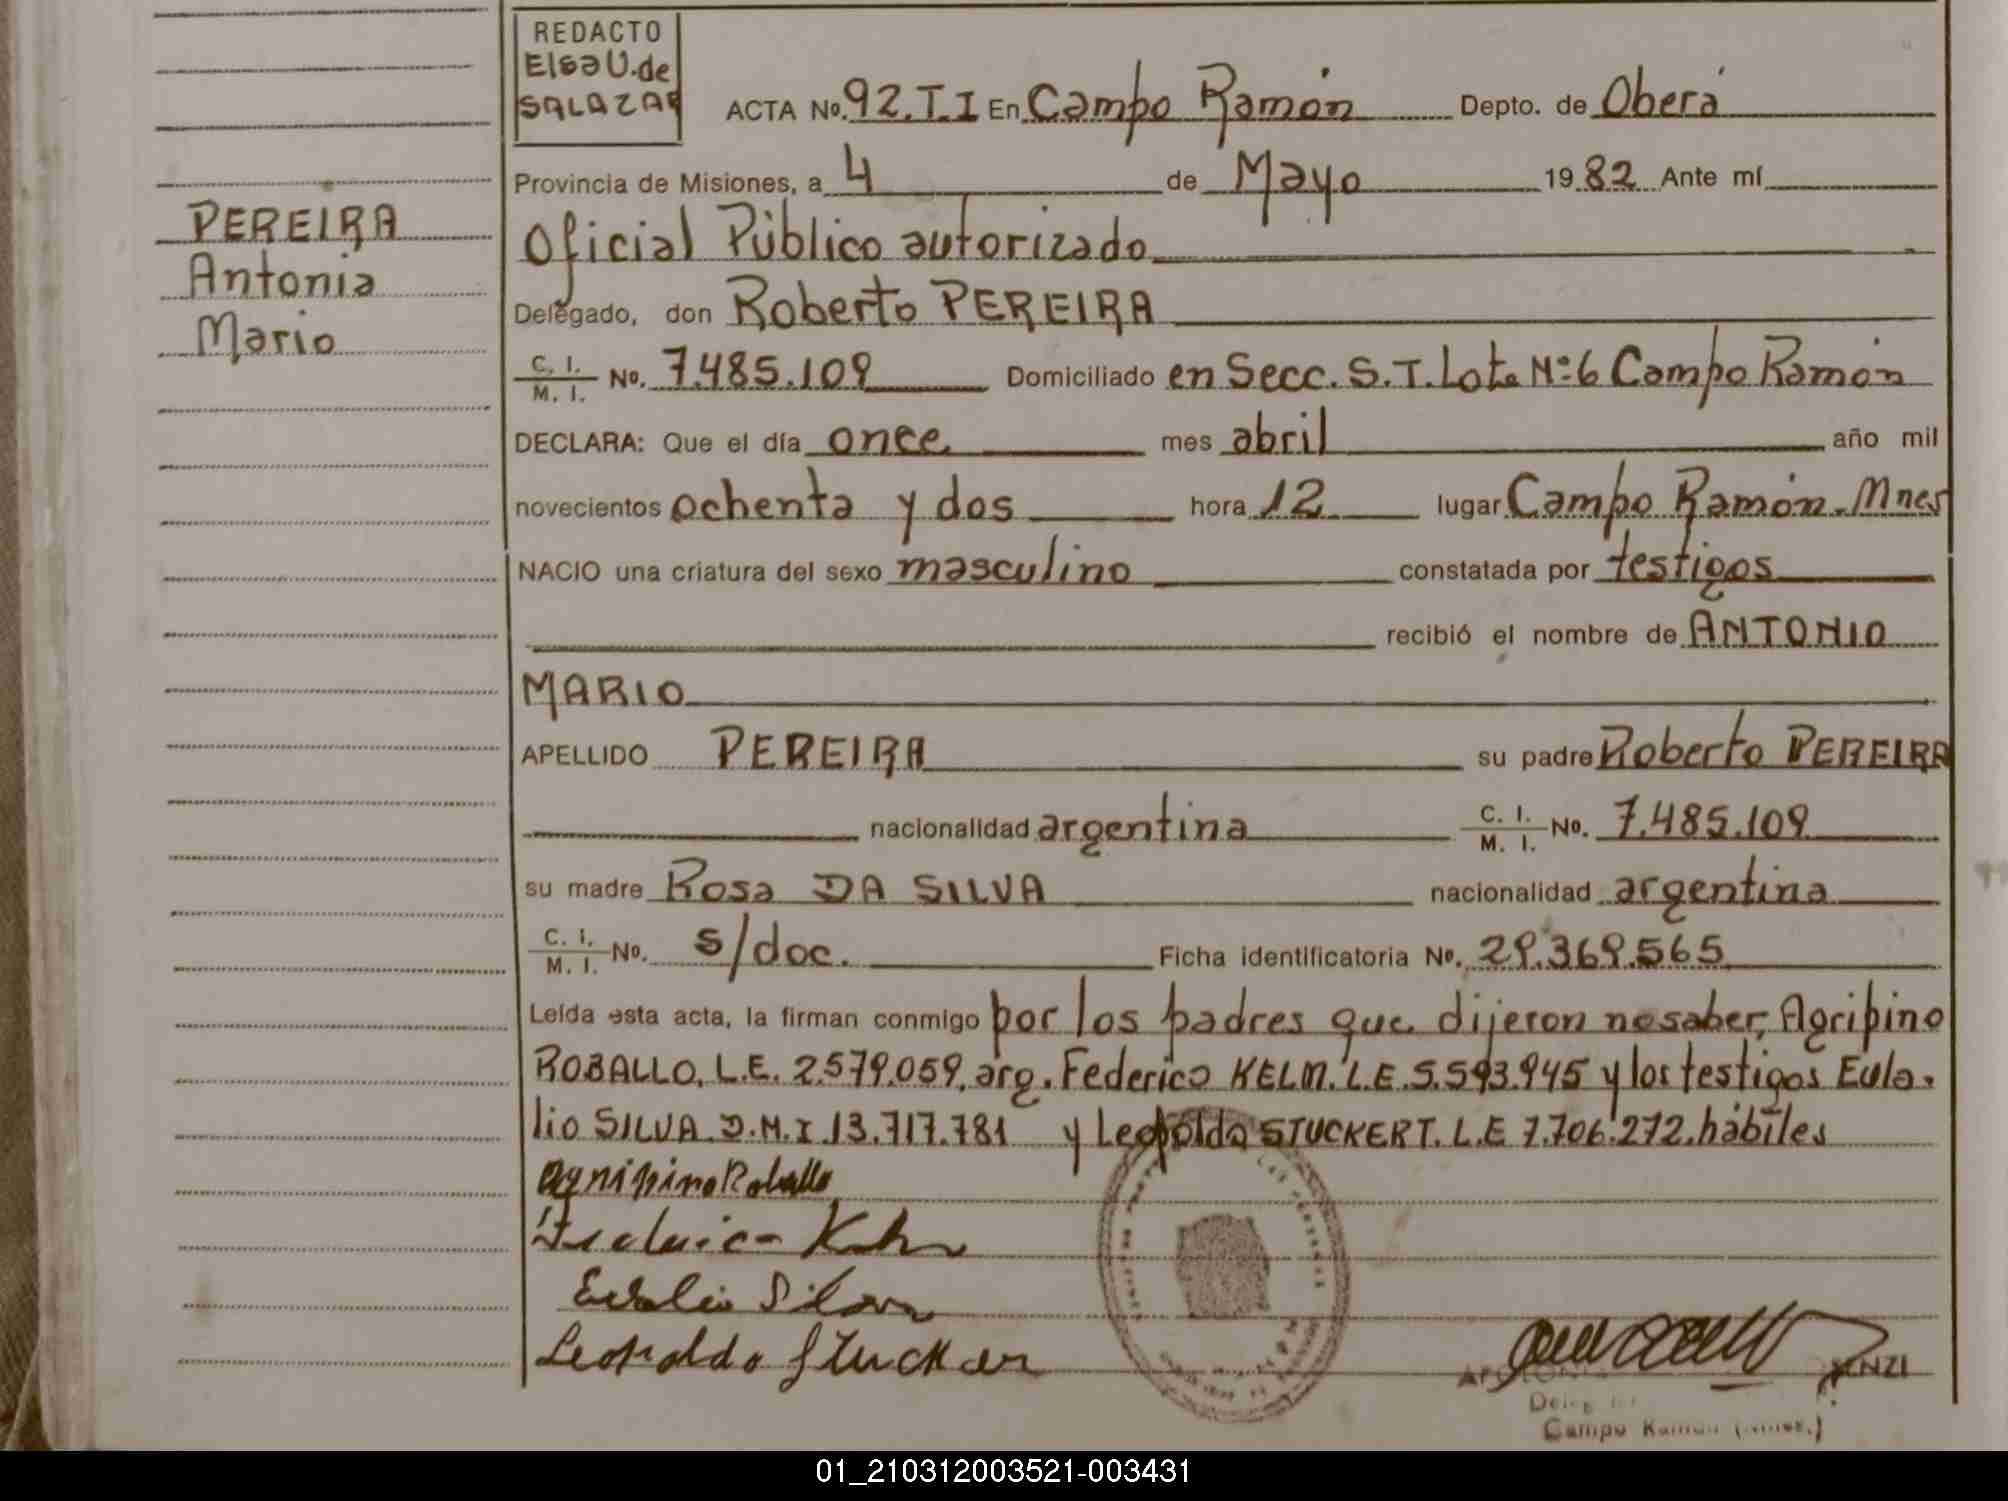 REDACTO
Elsa U. de
SALAZAR
ACTA No. 92.T.I En Campo Ramón Depto. de Oberá
Provincia de Misiones, a 4 de Mayo 1982 Ante mí
Oficial Público autorizado
Delegado, don Roberto PEREIRA
C. I. / M. I. No. 7.485.109 Domiciliado en Secc. S.T. Lote Nº 6 Campo Ramón
DECLARA: Que el día once mes abril año mil
novecientos ochenta y dos hora 12 lugar Campo Ramón. Mnes
NACIO una criatura del sexo masculino constatada por testigos
recibió el nombre de ANTONIO
MARIO
APELLIDO PEREIRA su padre Roberto PEREIRA
nacionalidad argentina C. I. / M. I. No. 7.485.109
su madre Rosa DA SILVA nacionalidad argentina
C. I. / M. I. No. s/doc. Ficha identificatoria No. 29.369.565
Leída esta acta, la firman conmigo por los padres que dijeron no saber, Agripino
ROBALLO, L.E. 2.579.059, arg. Federico KELM. L.E. 5.593.945 y los testigos Eula-
lio SILVA D.M.I 13.717.781 y Leopoldo STUCKERT. L.E 7.706.272. hábiles
Agripino Roballo
Eulalio Silva
Leopoldo Stucker
Campo Ramón
PEREIRA
Antonia
Mario
01_210312003521-003431